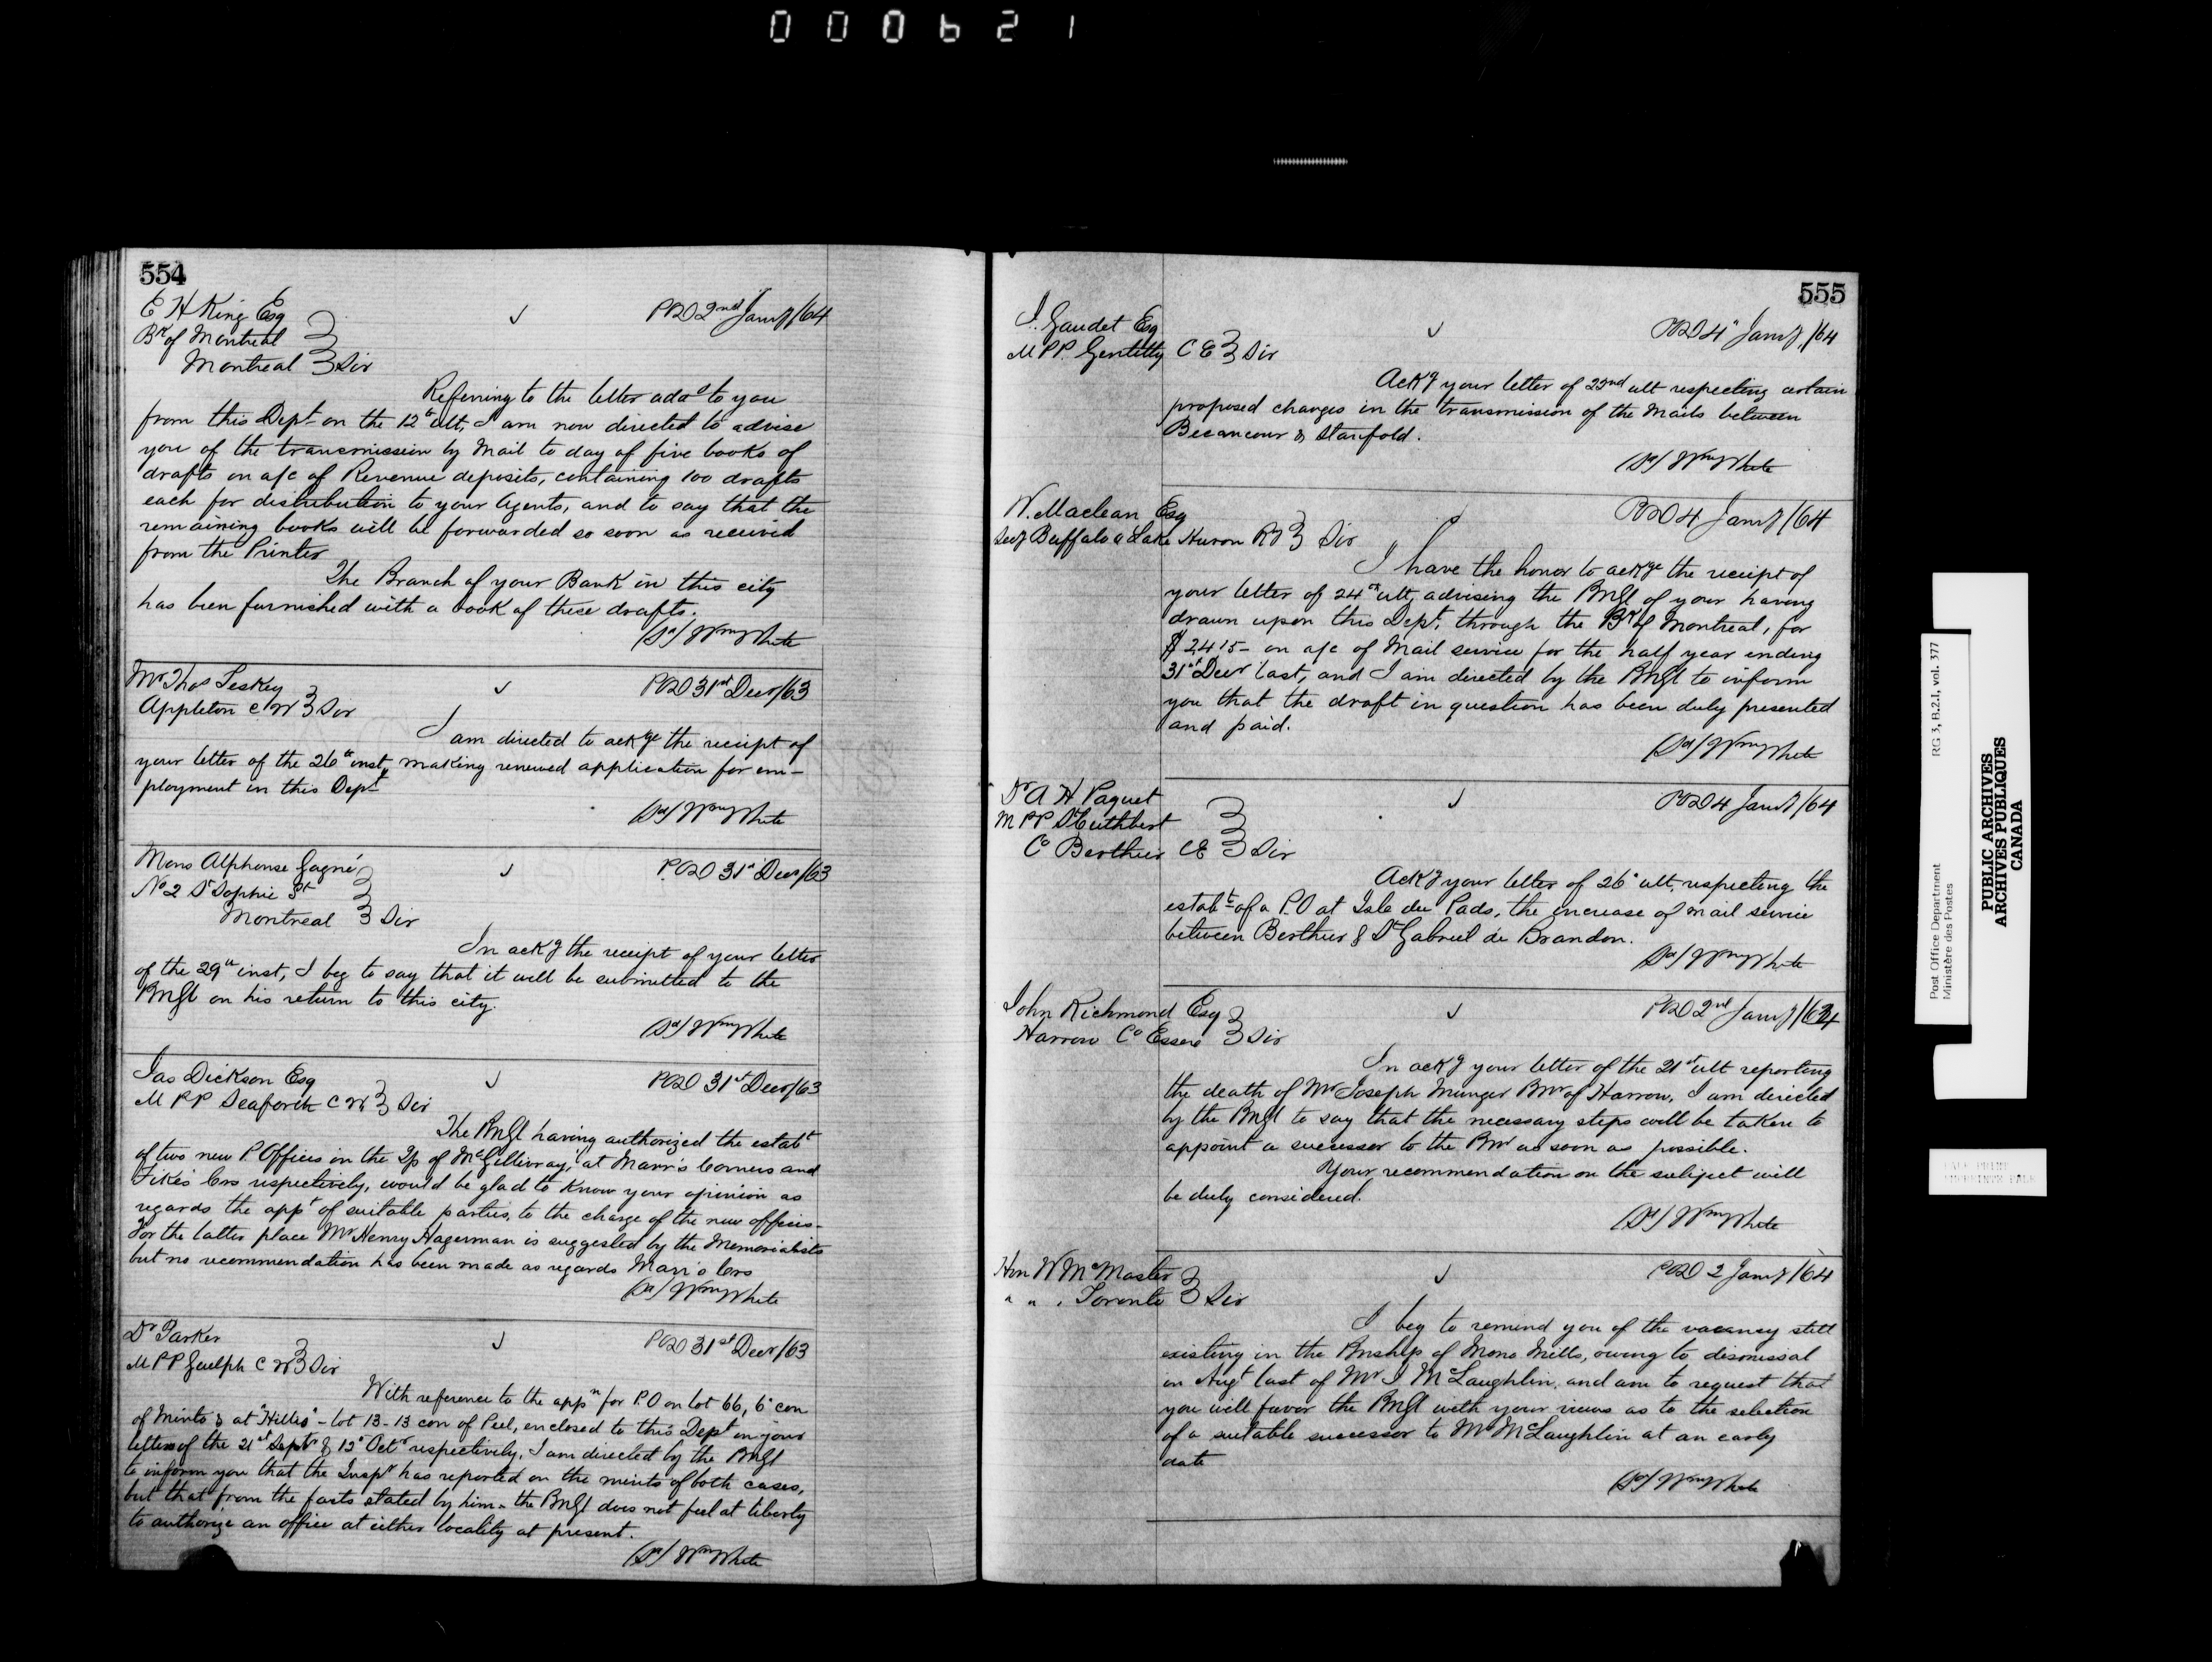 000621
554
E H King Esq
Bk of Montreal
Montreal Sir
POD 2nd Jany/64
Referring to the letter add<sup>d</sup> to you
from this Dept on the 12th ult, I am now directed to advise
you of the transmission by Mail to day of five books of
drafts on a/c of Revenue deposits, containing 100 drafts
each for distribution to your Agents, and to say that the
remaining books will be forwarded so soon as received
from the Printer
The Branch of your Bank in this city
has been furnished with a book of these drafts.
(Sd) Wm White
Mr Thos Leskey
Appleton C W Sir
POD 31st Decr/63
I am directed to ackge the receipt of
your letter of the 26th inst, making renewed application for em-
ployment in this Dept
(Sd) Wm White
Mons Alphonse Gagné
No 2 St Sophie St
Montreal Sir
POD 31st Decr/63
In ackg the receipt of your letter
of the 29th inst, I beg to say that it will be submitted to the
PMGl on his return to this city.
(Sd) Wm White
Jas Dickson Esq
M P P Seaforth C W Sir
POD 31st Decr/63
The PMGl having authorized the estabt
of two new P. Offices in the Tp of McGillivray, at Marr's Corners and
Fikes Cors respectively, would be glad to know your opinion as
regards the appt of suitable parties, to the charge of the new offices-
For the latter place Mr Henry Hagerman is suggested by the Memorialists
but no recommendation has been made as regards Marr's Cors
(Sd) Wm White
Dr Parker
M P P Guelph C W Sir
POD 31st Decr/63
With reference to the appn for P.O on lot 66, 6th con
of Minto & at "Hillis" - lot 13-13 con of Peel, enclosed to this Dept in your
letters of the 21st Septr & 13th Octr respectively, I am directed by the PMGl
to inform you that the Inspr has reported on the merits of both cases,
but that from the facts stated by him - the PMGl does not feel at liberty
to authorize an office at either locality at present.
(Sd) Wm White
555
J. Gaudet Esq
M P P. Gentilly C E Sir
POD 4th Jany/64
Ackg your letter of 22nd ult respecting certain
proposed changes in the transmission of the Mails between
Becancour & Stanfold.
(Sd) Wm White
W. Maclean Esq
Secy Buffalo & Lake Huron Ry Sir
POD 4 Jany/64
I have the honor to ackge the receipt of
your letter of 24th ult, advising the PMGl of your having
drawn upon this Dept, through the Bk of Montreal, for
$2415- on a/c of Mail service for the half year ending
31st Decr last, and I am directed by the PMGl to inform
you that the draft in question has been duly presented
and paid.
(Sd) Wm White
Dr A H Paquet
M P P St Cuthbert
Co Berthier C E Sir
POD 4 Jany/64
Ackg your letter of 26th ult. respecting the
estabt of a P.O at Isle du Pads, the increase of mail service
between Berthier & St Gabriel de Brandon.
(Sd) Wm White
John Richmond Esq
Harrow Co Essex Sir
POD 2nd Jany/64
In ackg your letter of the 21st ult reporting
the death of Mr Joseph Munger Pmr of Harrow, I am directed
by the PMGl to say that the necessary steps will be taken to
appoint a successor to the Pmr as soon as possible.
Your recommendation on the subject will
be duly considered.
(Sd) Wm White
Hon W McMaster
" " . Toronto Sir
POD 2 Jany/64
I beg to remind you of the vacancy still
existing in the Pmship of Mono Mills, owing to dismissal
in Augt last of Mr J McLaughlin, and am to request that
you will favor the PMGl with your views as to the selection
of a suitable successor to Mr McLaughlin at an early
date
(Sd) Wm White
Post Office Department
Ministère des Postes
RG 3, B.2.1, vol. 377
PUBLIC ARCHIVES
ARCHIVES PUBLIQUES
CANADA